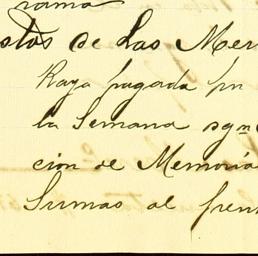 rama
stos de las Mer
Raya pagada pr
la Semana sgn
cion de Memoria
Sumas al fren